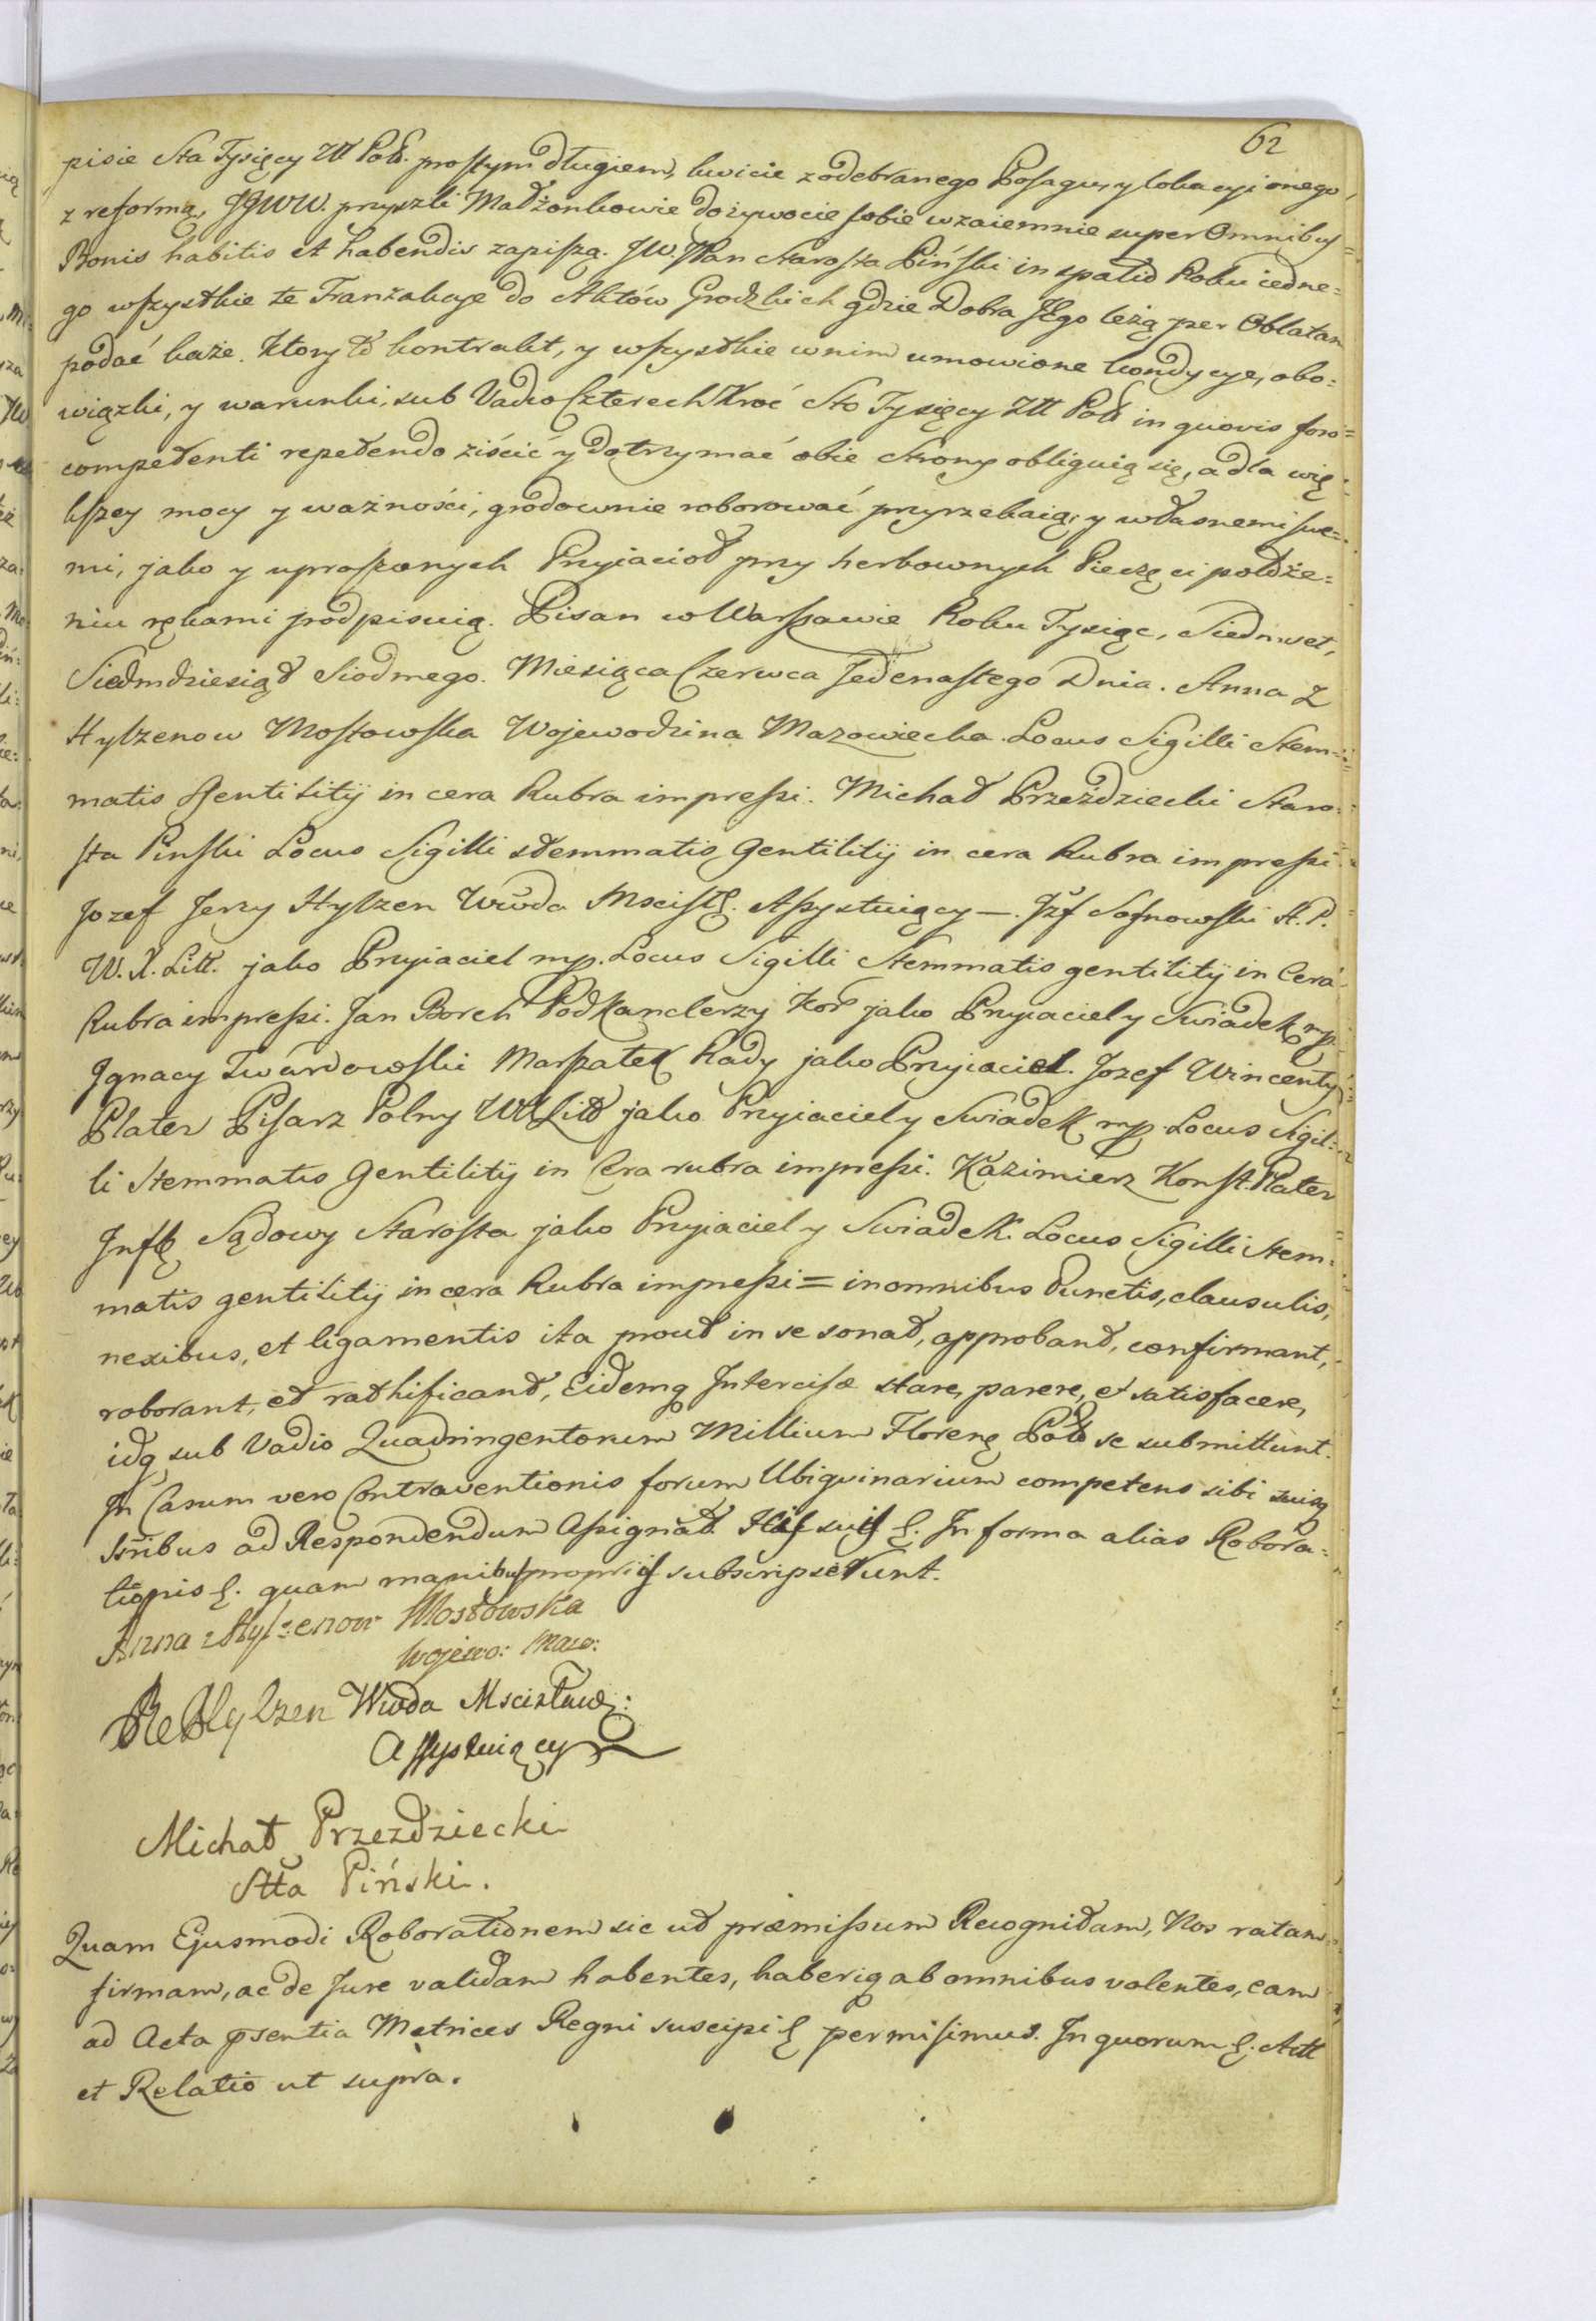 62
pisie Sta Tysięcy Złł Polł. prostym długiem, kwicie z odebranego Posagu, y lokacyi onego,
z reformą, JJWW. przyszli Małżonkowie dożywocie sobie wzaiemnie super Omnibus=
Bonis habitis et habendis zapiszą. JW. JPan Starosta Piński in spatio Roku iedne=
go wszystkie te Tranzakcye do Aktów Grodzkich gdzie Dobra JEgo leżą per Oblatam
podać każe. Ktory to kontrakt, y wszystkie w nim umowione kondycye, obo=
wiązki, y warunki, sub Vadio Czterech Kroć Sto Tysięcy Złł Poll in quovis foro=
competenti repetendo ziścić y dotrzymać obie Strony obliguią się, a dla wię
kszey mocy y ważności, grodownie roborować przyrzekaią, y własnemi swe=
mi, jako y uproszonych Przyiacioł przy herbownych Pieczęci położe=
niu rękami podpisuią. Pisan w Warszawie Roku Tysiąc, Siedmset,
Siedmdziesiąt Siodmego. Miesiąca Czerwca Jedenastego Dnia. Anna Z
Hylzenow Mostowska Wojewodzina Mazowiecka. Locus Sigilli Stem=
matis Gentilitij in cera Rubra impressi. Michał Przeździecki Staro=
sta Pinski Locus Sigilli stemmatis Gentilitij in cera Rubra impressi
Jozef Jerzy Hylzen Wwda Mscisł. Assystuiący —. Jzf Sosnowski H. P.
W. X. Litt. jako Przyiaciel mp. Locus Sigilli Stemmatis gentilitij in Cera
Rubra impressi. Jan Borch Podkanclerzy Kor jako Przyiaciel y Swiadek mp
Ignacy Twardowski Marszałek Rady jako Przyiaciel. Jozef Wincenty
Plater Pisarz Polny WXLitt jako Przyiaciel y Swiadek mp. Locus Sigil=
li Stemmatis Gentilitij in Cera rubra impressi. Kazimierz Konst. Plater
Infl Sądowy Starosta jako Przyiaciel y Swiadek. Locus Sigilli Stem=
matis gentilitij in cera Rubra impressi = in omnibus Punctis, clausulis,
nexibus, et ligamentis ita prout in se sonat, approbant, confirmant,
roborant, et rathificant, Eidemq Intercisæ stare, parere, et satisfacere,
idq sub Vadio Quadringentorum Millium Floren Poll se submittunt.
In Casum vero Contraventionis forum Ubiquinarium competens sibi suisq
ssribus ad Respondendum Assignat. In forma alias Robora=
tionis quam manibus proprijs subscripserunt.
Anna z Hylzenow Mostowska
Wojewo: Mazo:
Hylzen Wwoda Mscisław:
Assystuiący
Michał Przezdziecki
Stta Piński.
Quam Ejusmodi Roborationem sic ut præmissum Recognitam, Nos ratam
firmam, ac de Jure validam habentes, haberiq ab omnibus volentes, eam
ad Acta psentia Metrices Regni suscipi permisimus. In quorum Actt
et Relatio ut supra.